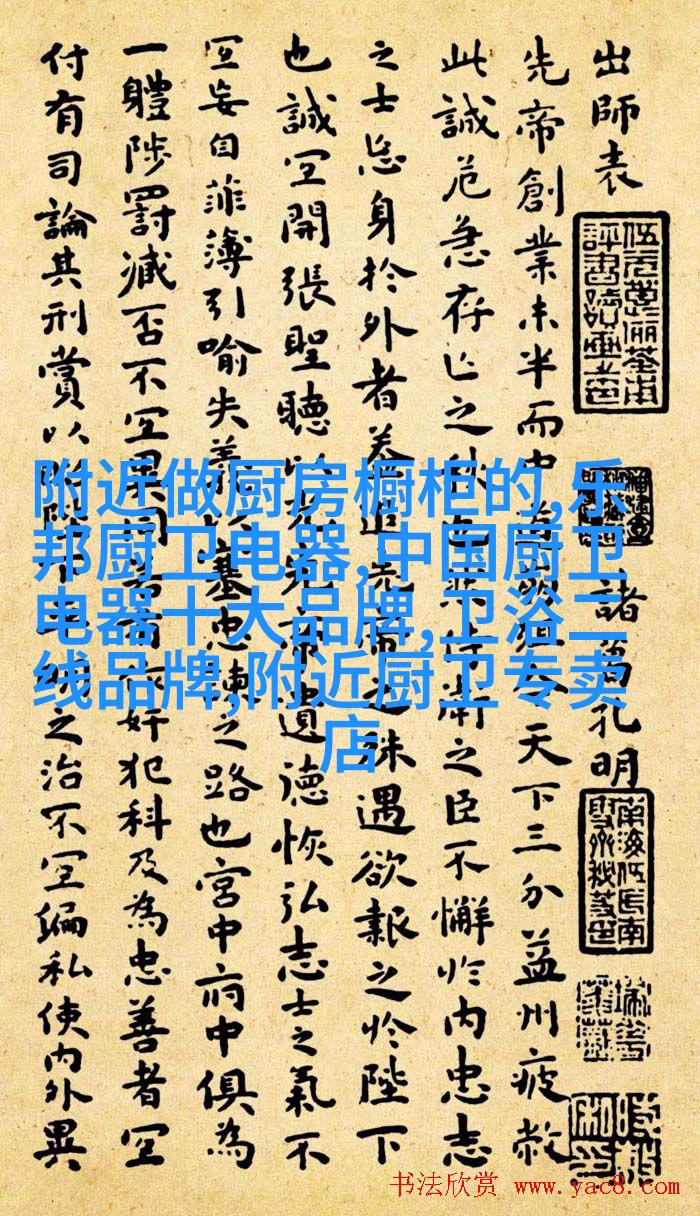 出師表
諸葛孔明
先帝創業未半而中天下三分益州疲敝
此誠危急存亡之秋也然侍衛之臣不懈於内忠志
之士忘身於外者蓋追先帝之殊遇欲報之於陛下
也誠宜開張聖聽以光先帝遺德恢弘志士之氣不
宜妄自菲薄引喻失義以塞忠諫之路也宮中府中俱為
一體陟罰臧否不宜異同若有作奸犯科及為忠善者宜
付有司論其刑賞以昭陛下平明之治不宜偏私使内外異
附近做厨房橱柜的,乐
邦厨卫电器,中国厨卫
电器十大品牌,卫浴二
线品牌,附近厨卫专卖
店
书法欣赏 www.yac8.com